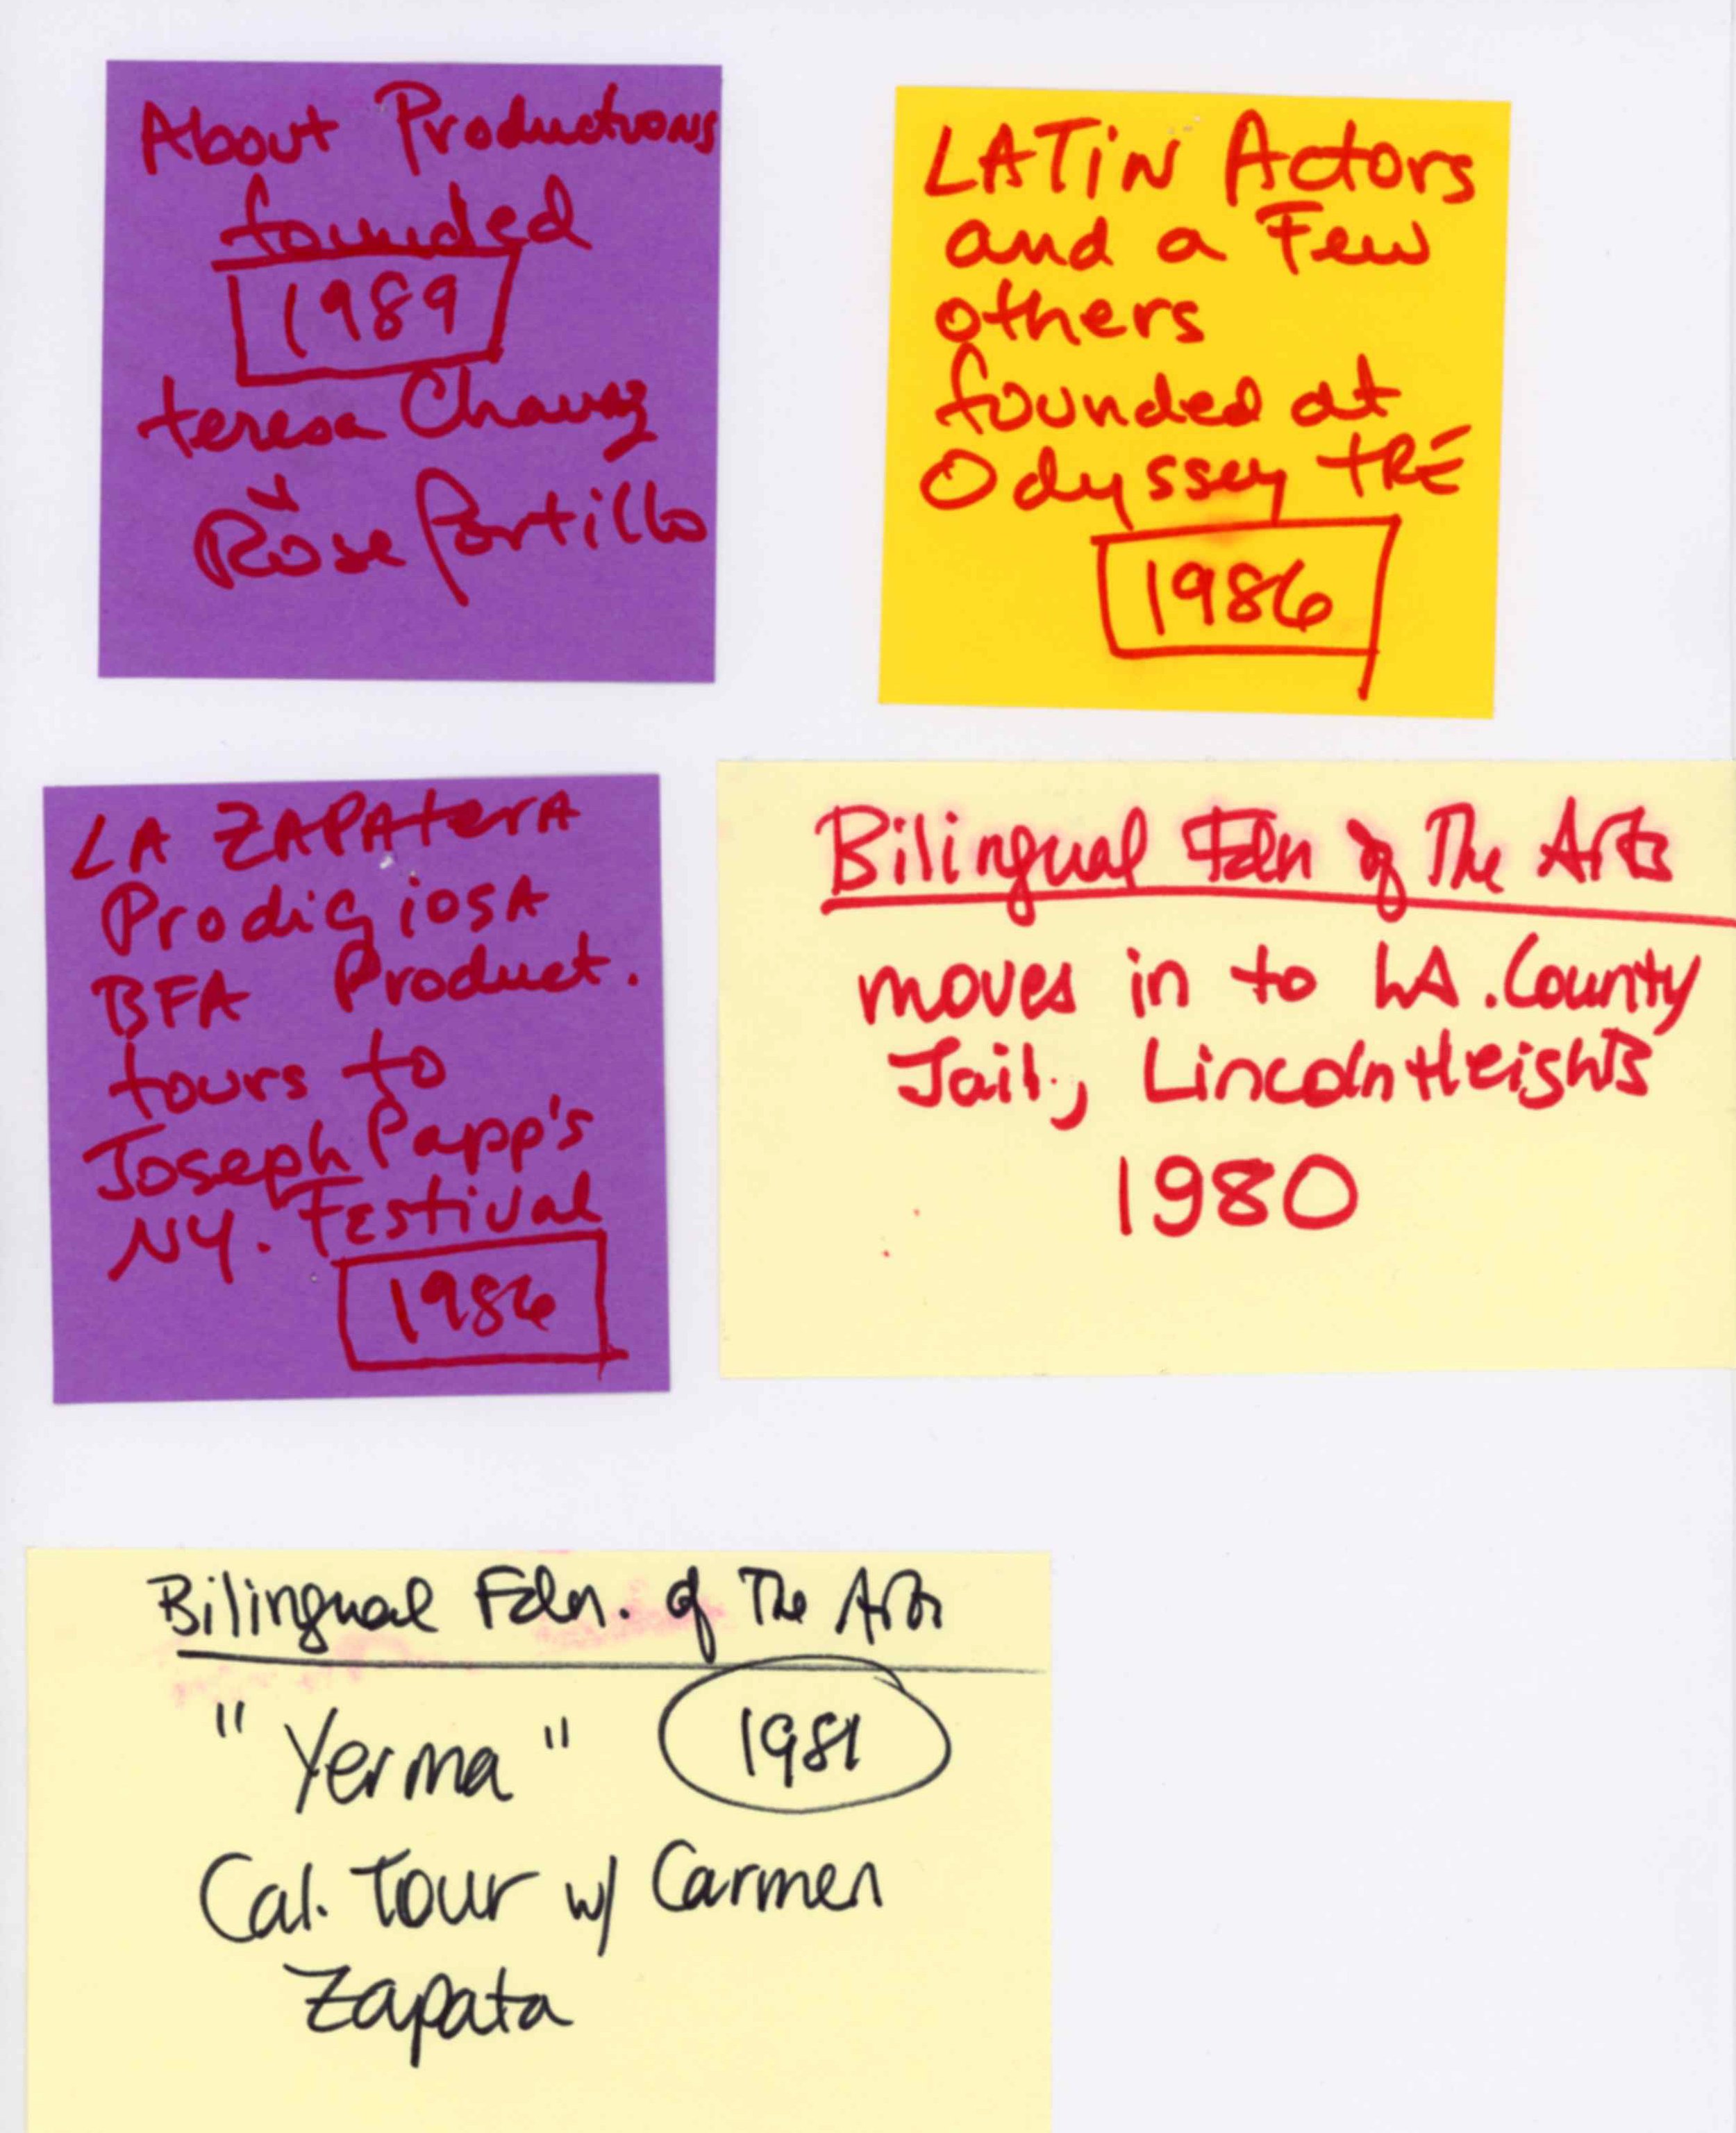 About Productions
founded
1989
teresa Chavez
y
Rose Portillo
LATiN Actors
and a Few
others
founded at
Odyssey tRE
1986
LA ZAPAterA
ProdigiosA
BFA Product.
tours to
Joseph Papp's
NY. FEstival
1986
Bilingual Fdn of The Arts
moves in to LA. County
Jail, Lincoln Heights
1980
Bilingual Fdn. of The Arts
"Yerma" 1981
Cal. Tour w/ Carmen
Zapata